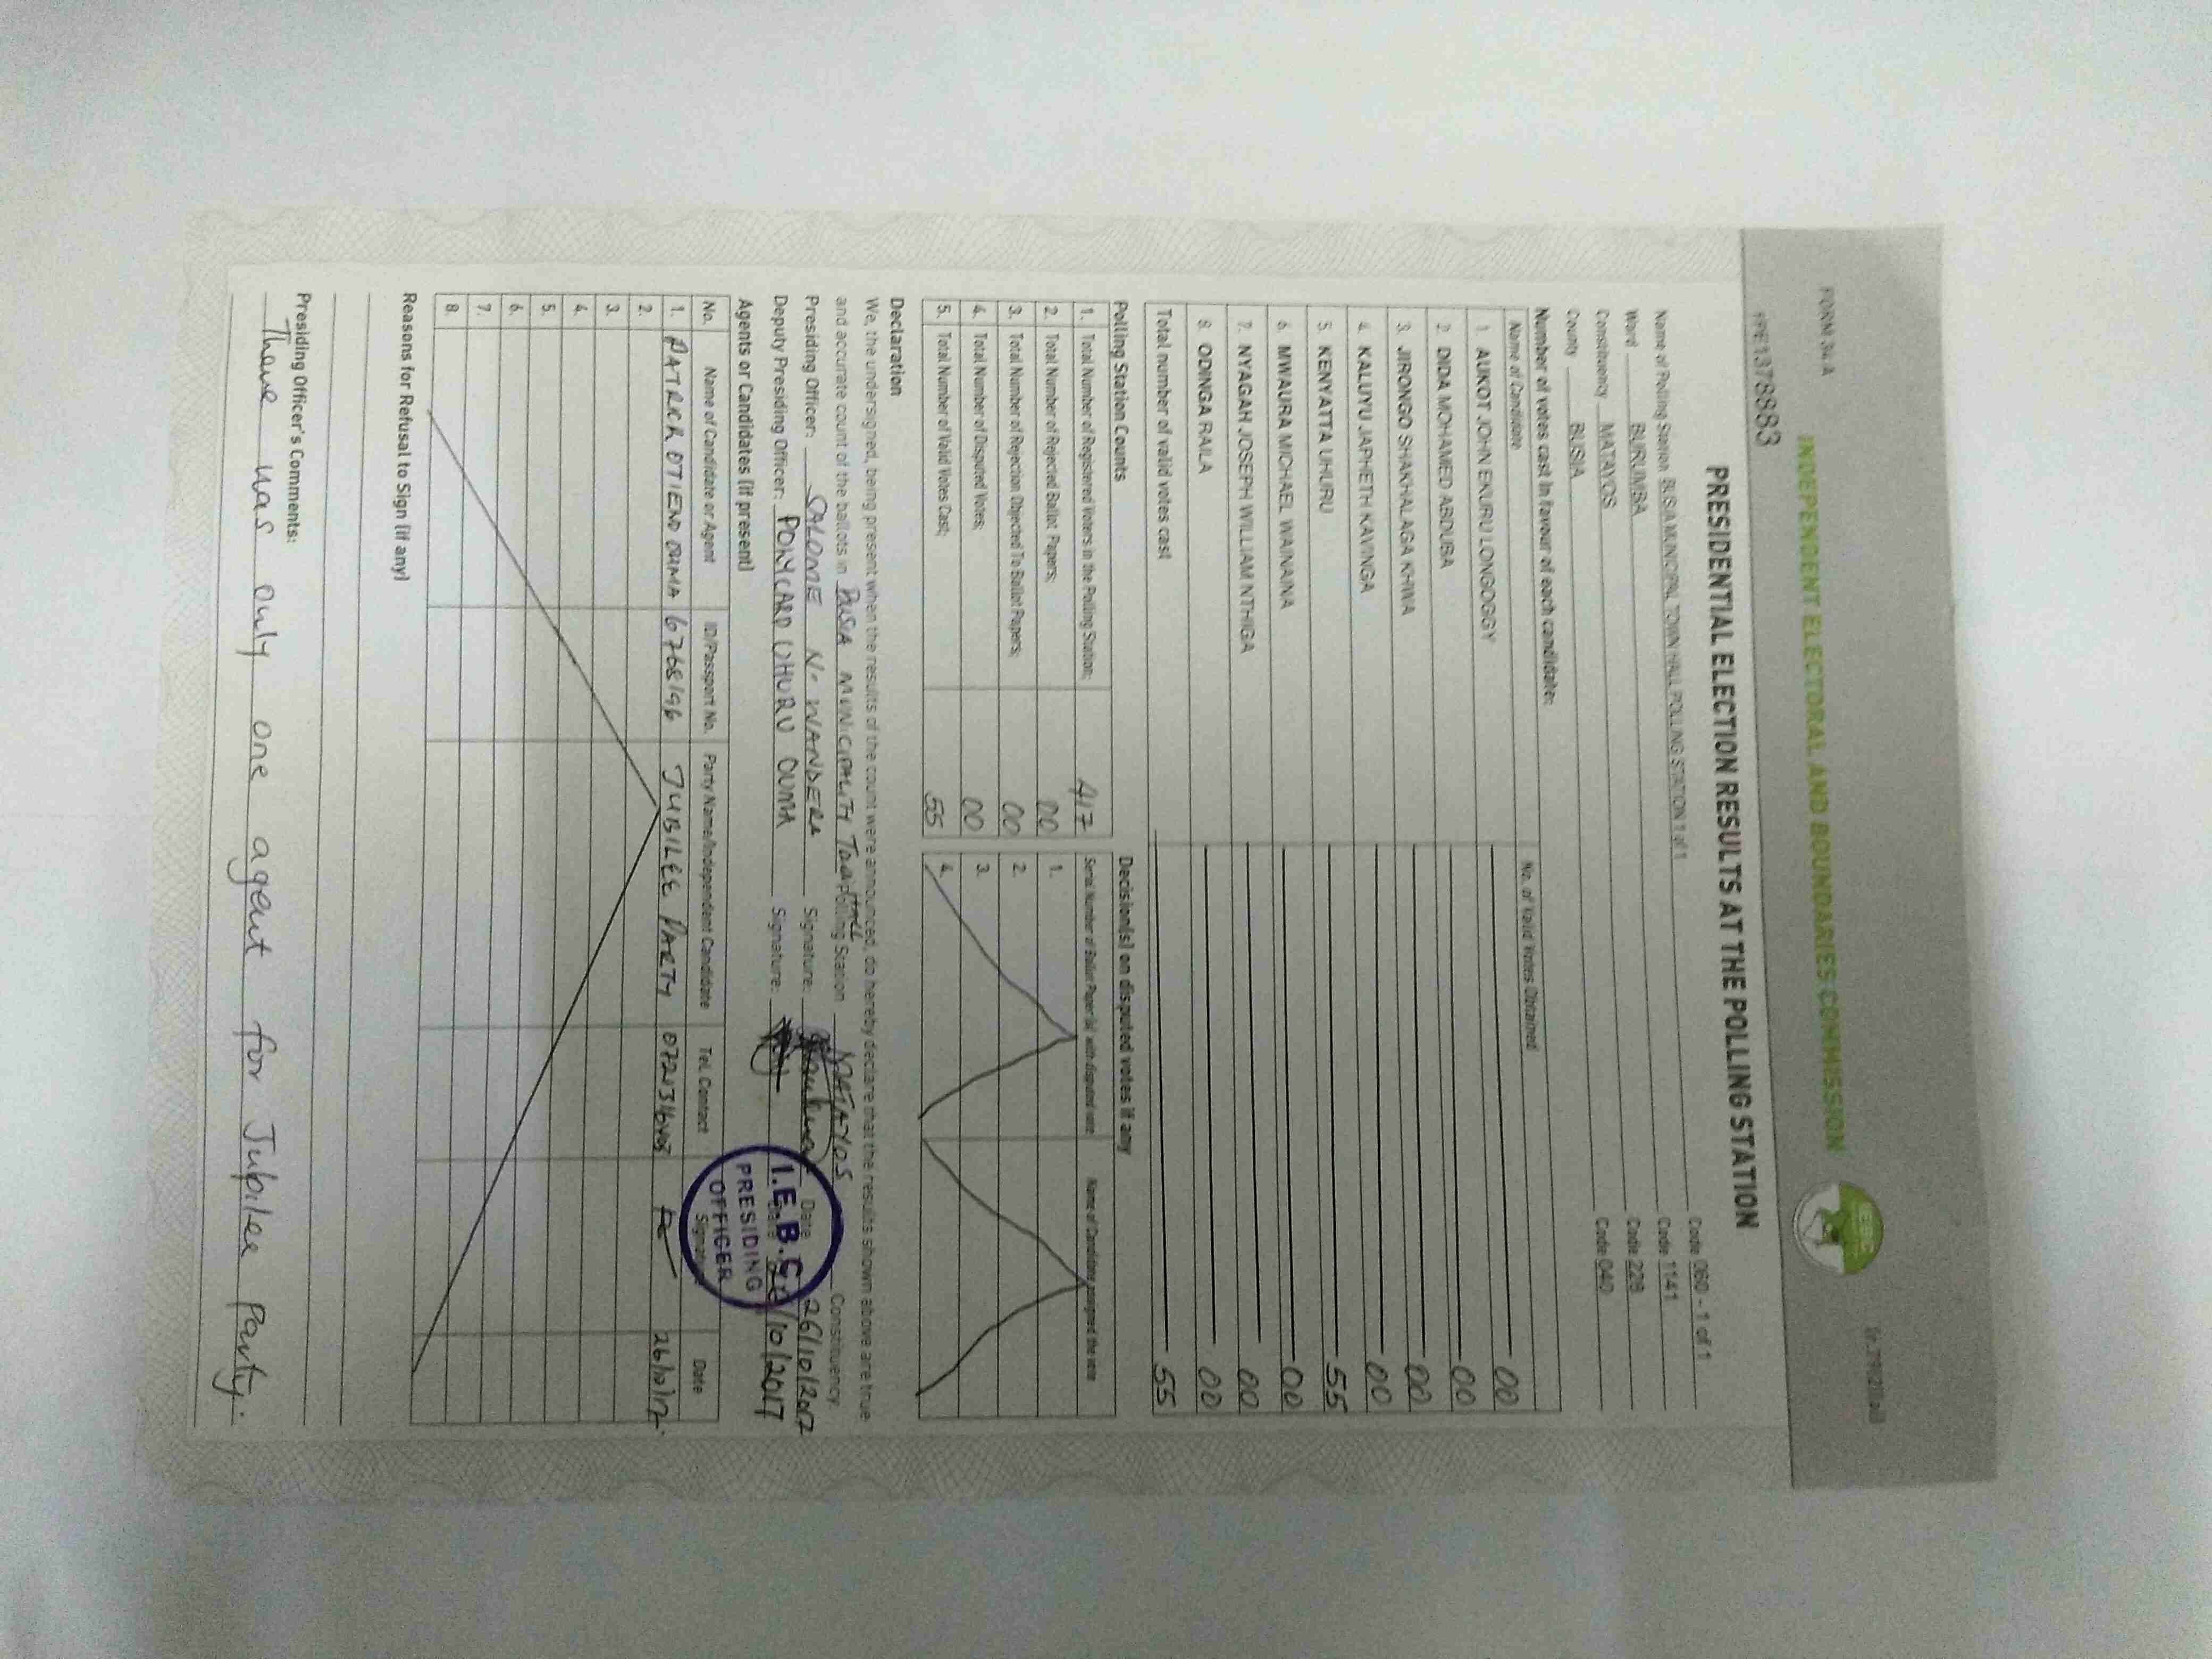 FORM 34 A
INDEPENDENT ELECTORAL AND BOUNDARIES COMMISSION
IEBC
PPE1378883
PRESIDENTIAL ELECTION RESULTS AT THE POLLING STATION
Name of Polling Station BUSIA MUNICIPAL TOWN HALL POLLING STATION 1 of 1 Code 060 - 1 of 1
Ward BURUMBA Code 1141
Constituency MATAYOS Code 228
County BUSIA Code 040
Number of votes cast in favour of each candidate:
Name of Candidate No. of Valid Votes Obtained
1. AUKOT JOHN EKURU LONGOGGY 00
2. DIDA MOHAMED ABDUBA 00
3. JIRONGO SHAKHALAGA KHWA 00
4. KALUYU JAPHETH KAVINGA 00
5. KENYATTA UHURU 55
6. MWAURA MICHAEL WAINAINA 00
7. NYAGAH JOSEPH WILLIAM NTHIGA 00
8. ODINGA RAILA 00
Total number of valid votes cast 55
Polling Station Counts
1. Total Number of Registered Voters in the Polling Station; 417
2. Total Number of Rejected Ballot Papers; 00
3. Total Number of Rejection Objected To Ballot Papers; 00
4. Total Number of Disputed Votes; 00
5. Total Number of Valid Votes Cast; 55
Decision(s) on disputed votes if any
Serial Number of Ballot Paper (s) with disputed vote Name of Candidate assigned the vote
1.
2.
3.
4.
Declaration
We, the undersigned, being present when the results of the count were announced, do hereby declare that the results shown above are true
and accurate count of the ballots in BUSIA MUNICIPALITY TOWN HALL Polling Station MATAYOS Constituency
Presiding Officer: SALOME N. WANDERA Signature: Date 26/10/2017
Deputy Presiding Officer: POLYCARP OHURU OUMA Signature: 26/10/2017
I.E.B.C.
PRESIDING
OFFICER
Agents or Candidates (if present)
No. Name of Candidate or Agent ID/Passport No. Party Name/Independent Candidate Tel. Contact Signature Date
1. PATRICK OTIENO OUMA 6768196 JUBILEE PARTY 26/10/17.
2.
3.
4.
5.
6.
7.
8.
Reasons for Refusal to Sign (if any)
Presiding Officer's Comments:
There was only one agent for Jubilee Party.